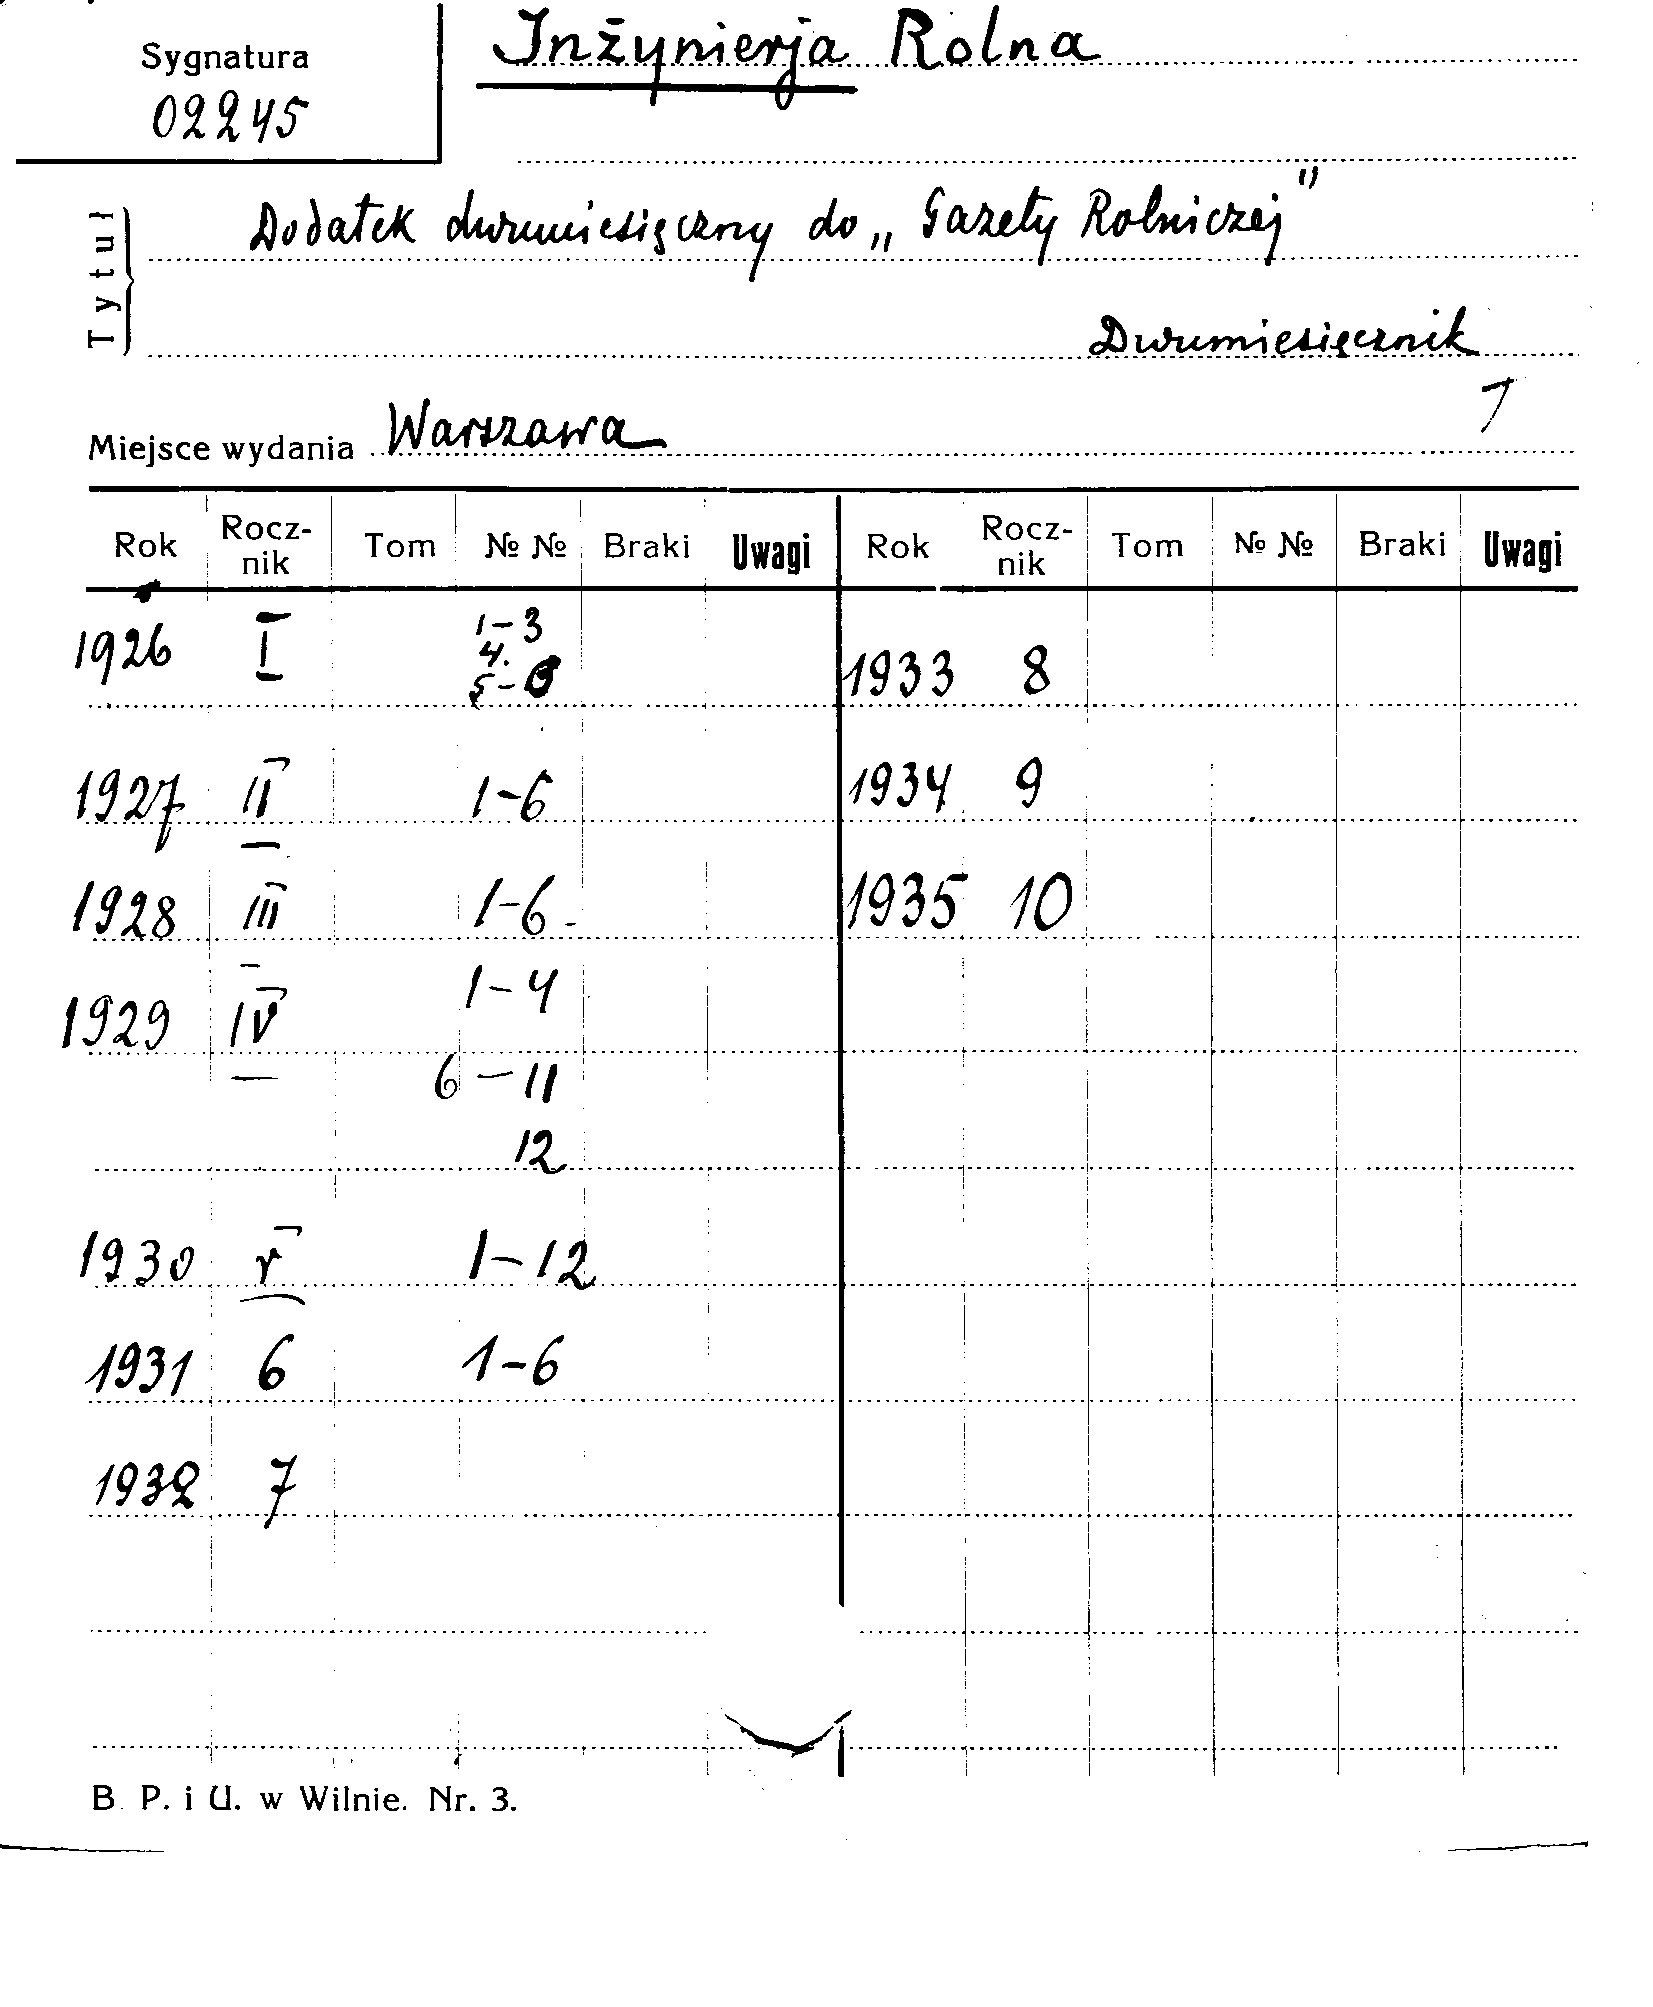 Sygnatura
02245
Inżynierja Rolna
Tytuł
Dodatek dwumiesięczny do „Gazety Rolniczej"
Dwumiesięcznik
Miejsce wydania Warszawa
Rok Rocz-nik Tom № № Braki Uwagi Rok Rocz-nik Tom № № Braki Uwagi
1926 I 1-3
4.
5-6
1933 8
1927 II 1-6 1934 9
1928 III 1-6 1935 10
1929 IV 1-4
6-11
12
1930 V 1-12
1931 6 1-6
1932 7
B. P. i U. w Wilnie. Nr. 3.